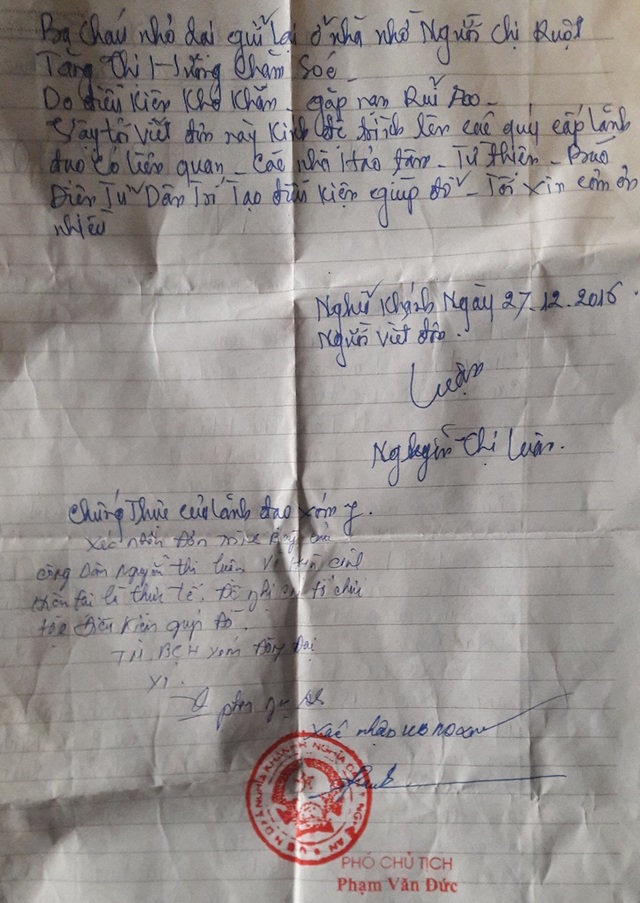 Ba cháu nhỏ dại gửi lại ở nhà nhờ Người chị Ruột
Tăng Thị Hường Chăm Sóc
Do điều kiện Khó Khăn - gặp nạn Rủi Ro -
Vậy tôi viết đơn này Kính đề trình lên các quý cấp lãnh
đạo có liên quan - Các nhà Hảo tâm - Từ thiện - Báo
Điện Tử Dân Trí Tạo điều Kiện giúp đỡ - Tôi xin cảm ơn
nhiều
Nghi Khánh Ngày 27.12.2016
Người Viết đơn
Luận
Nguyễn Thị Luận.
Chứng Thực của lãnh đạo xóm 7.
Xác nhận đơn trình Bày của
công Dân Nguyễn thị luận Về
là thực tế. Đề nghị các tổ chức
tạo Điều Kiện giúp đỡ.
TM.BCH xóm
Xác nhận
PHÓ CHỦ TỊCH
Phạm Văn Đức